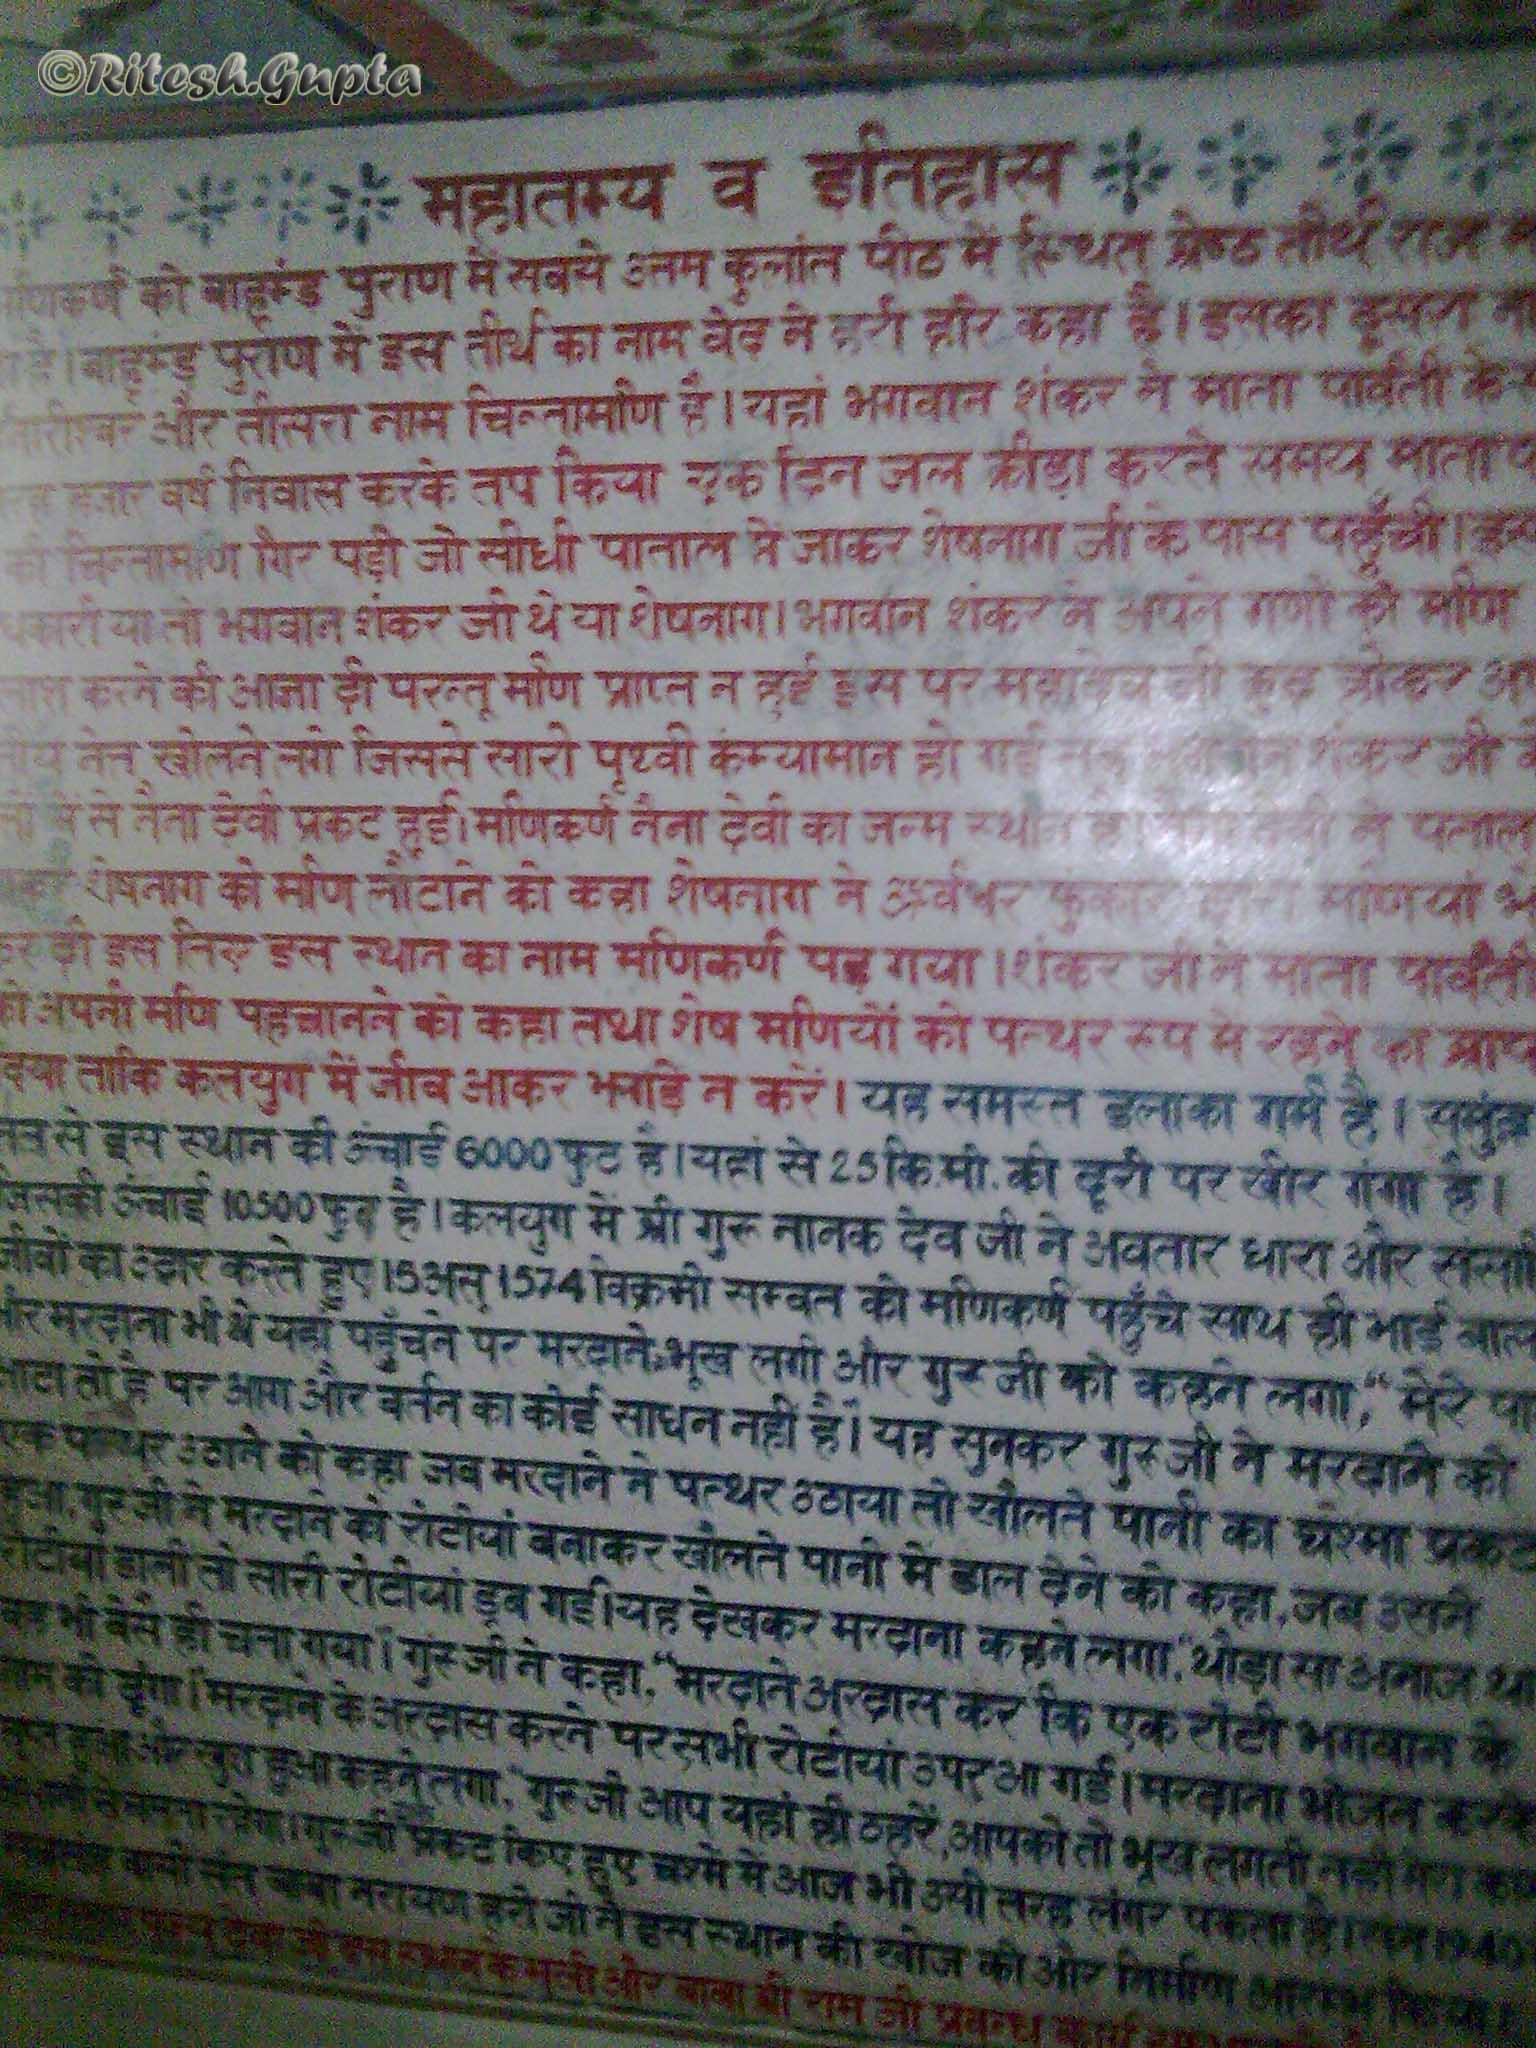 ©Ritesh.Gupta
महातम्य व इतिहास
को बाह्मंड पुराण में सबये उत्तम कुलांत पीठ में स्थित श्रेष्ठ तीर्थ राज
है। बाह्मंड पुर्राण में इस तीर्थ का नाम वेद ने हरी हीर कहा है। इसका दूसरा
और तीसरा नाम चिन्तामणि है। यहां भगवान शंकर ने माता पार्वती के
हजार वर्ष निवास करके तप किया एक दिन जल क्रीड़ा करते समय माता
की चिन्तामणि गिर पड़ी जो सीधी पाताल में जाकर शेषनाग जी के पास पहुँची।
या तो भगवान शंकर जी थे या शेषनाग। भगवान शंकर ने अपने गणों को मणि
करने की आज्ञा दी परन्तू मणि प्राप्त न हुई इस पर महादेव जी
खोलने लगे जिससे सारी पृथ्वी कंम्यामान हो गई शंकर जी
में से नैना देवी प्रकट हुई। मणिकर्ण नैना देवी का जन्म स्थान है।
शेषनाग को मणि लौटाने को कहा शेषनाग ने फुंकार द्वारा मणियां
दी इस लिए इस स्थान का नाम मणिकर्ण पड़ गया। शंकर जी ने माता पार्वती
को अपनी मणि पहचानने को कहा तथा शेष मणियों को पत्थर रूप में रहने का श्राप
दिया ताकि कलयुग में जीव आकर झगड़े न करें। यह समस्त इलाका गर्म है। समुंद्र
से इस स्थान की उंचाई 6000 फुट है। यहां से 25 कि.मी. की दूरी पर खीर गंगा है।
जिसकी उंचाई 10500 फुट है। कलयुग में श्री गुरू नानक देव जी ने अवतार धारा और
जीवों का उद्धार करते हुए 15 असू 1574 विक्रमी सम्वत को मणिकर्ण पहुँचे साथ ही भाई
और मरदाना भी थे यहाँ पहुँचने पर मरदाने भूख लगी और गुरू जी को कहने लगा, "मेरे
आटा तो है पर आग और बर्तन का कोई साधन नहीं है"। यह सुनकर गुरू जी ने मरदाने को
एक पत्थर उठाने को कहा जब मरदाने ने पत्थर उठाया तो खौलते पानी का चश्मा प्रकट
हुआ, गुरू जी ने मरदाने को रोटीयां बनाकर खौलते पानी में डाल देने को कहा, जब उसने
रोटीयां डाली तो सारी रोटीयां डूब गई। यह देखकर मरदाना कहने लगा, "थोड़ा सा अनाज था
वह भी वेसे ही चला गया"। गुरू जी ने कहा, "मरदाने अरदास कर कि एक रोटी भगवान के
नाम की दूंगा"। मरदाने के अरदास करने पर सभी रोटीयां उपर आ गई। मरदाना भोजन करके
हुआ और खुश हुआ कहने लगा, "गुरू जी आप यहां ही ठहरें, आपको तो भूख लगती नहीं
गुरू जी प्रकट किए हुए चश्में में आज भी उसी तरह लंगर पकता है। सन 1940
बाबा नरायण हरी जी ने इस स्थान की खोज की और निर्माण आरम्भ किया।
इस स्थान के और बाबा श्री राम जी प्रबन्धक